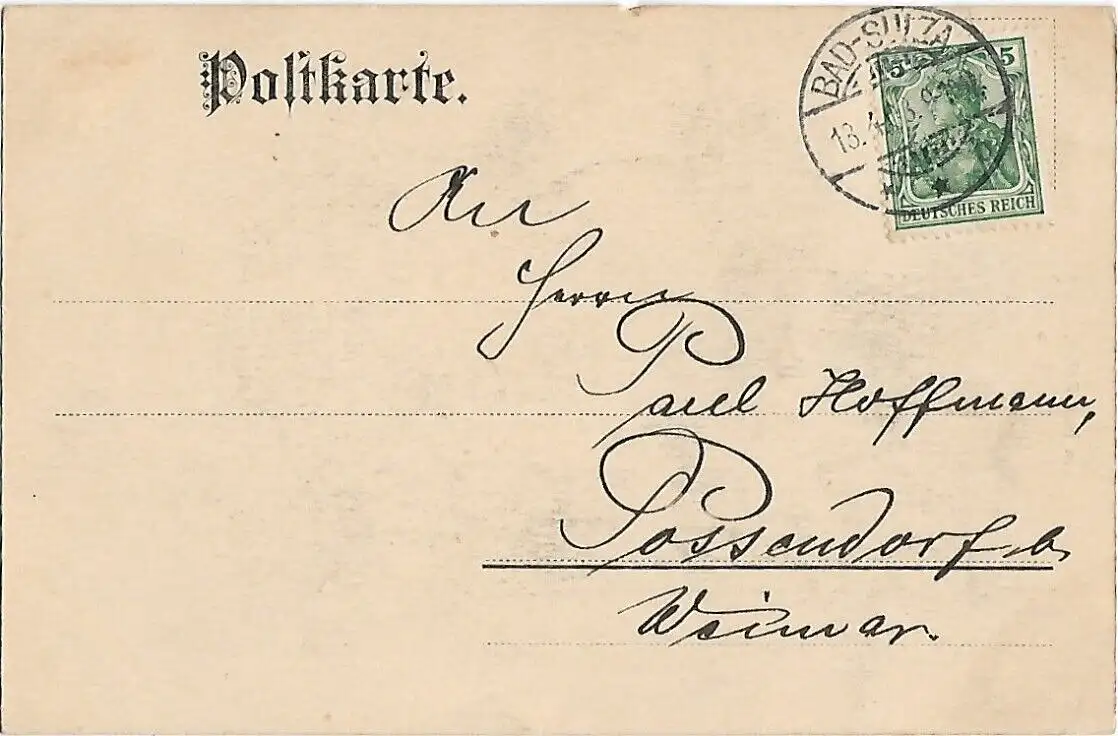 Postkarte.
BAD-SULZA
5 5
DEUTSCHES REICH
An
Herrn
Paul Hoffmann,
Possendorf b.
Weimar.